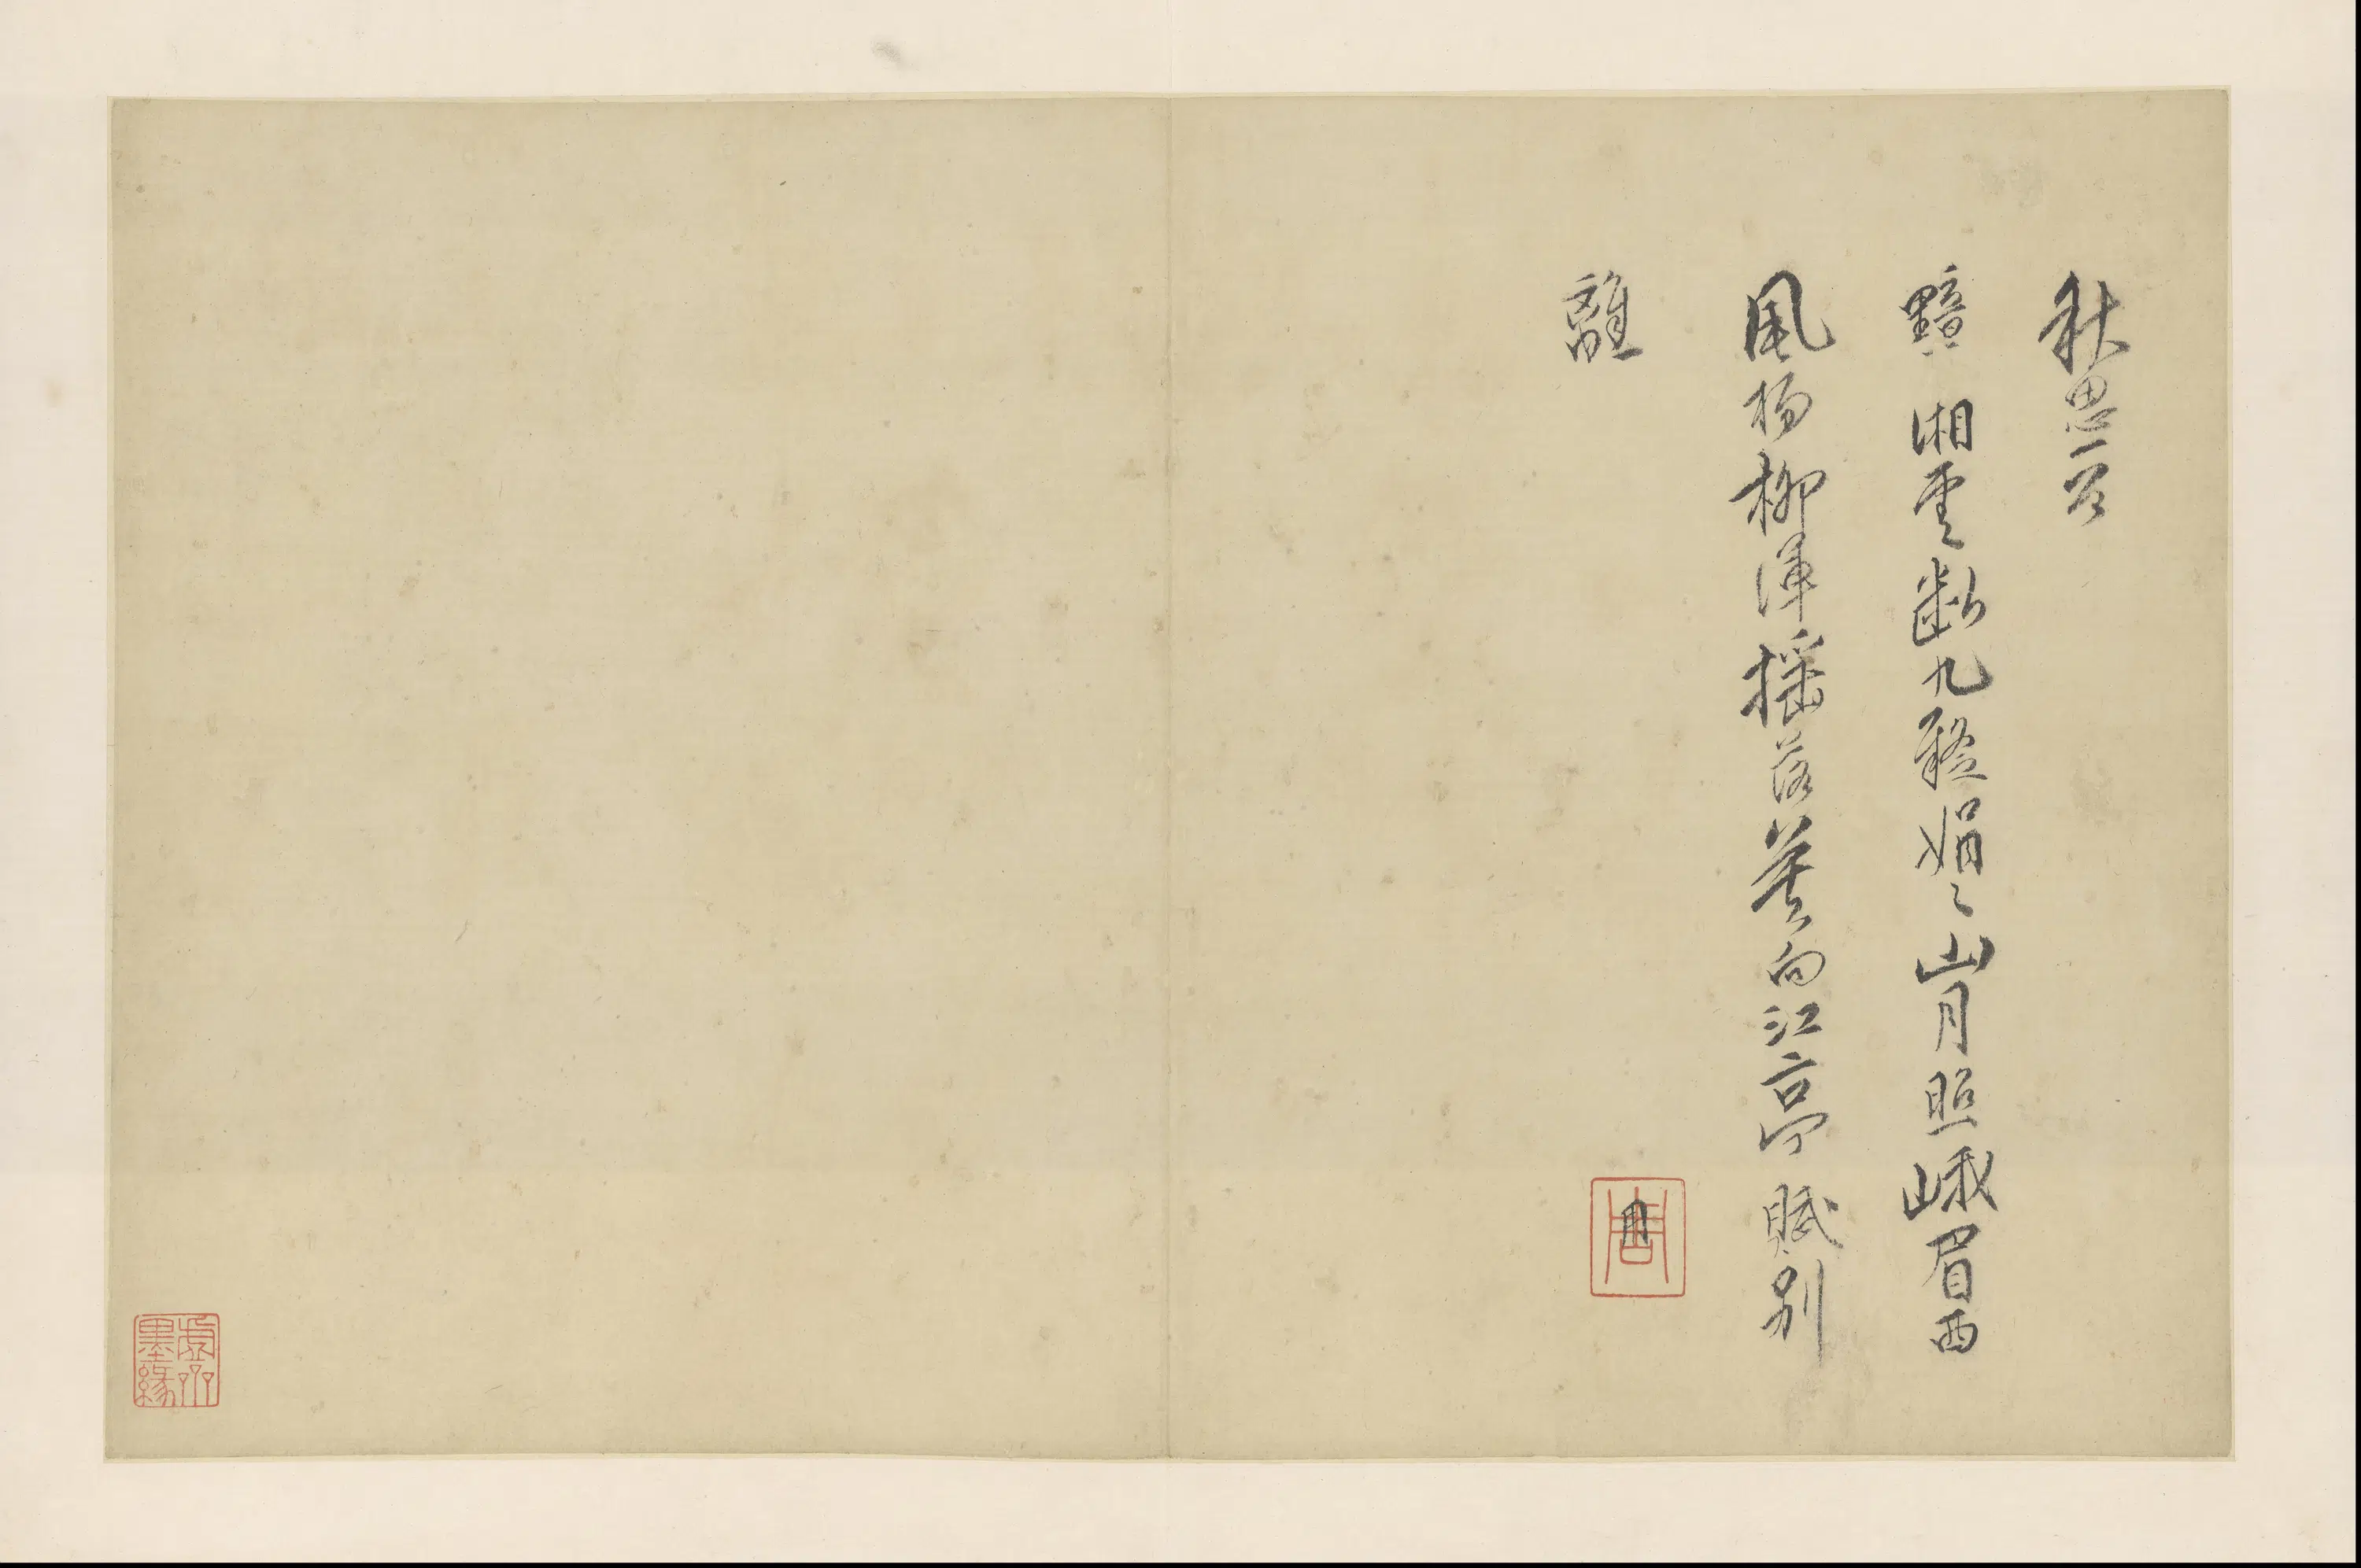 秋思一首
黯〻湘雲斷九疑娟〻山月照峨眉西
風楊柳渾搖落莫向江亭賦別
離
虛齋墨緣